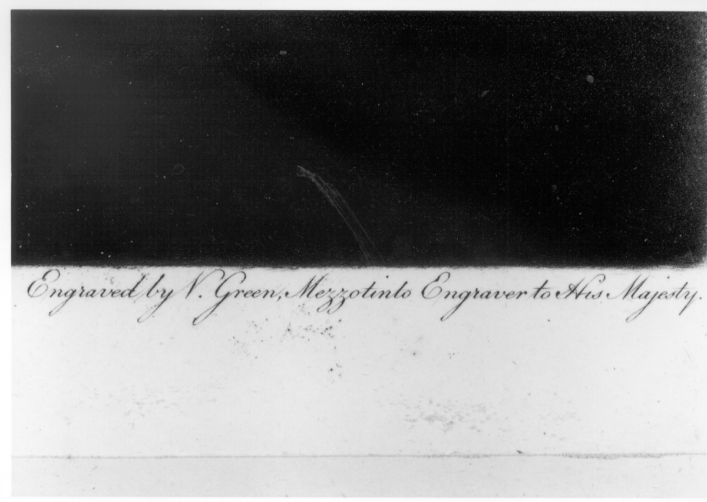 Engraved by V. Green, Mezzotinto Engraver to His Majesty.